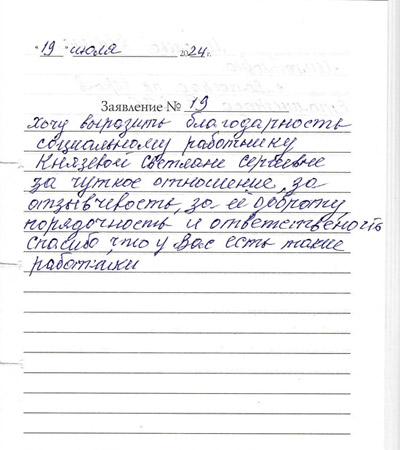 "19" июля 2024 г.
Заявление № 19
Хочу выразить благодарность
социальному работнику
Князевой Светлане Сергеевне
за чуткое отношение, за
отзывчевость, за её доброту,
порядочность и ответственость
спасибо, что у Вас есть такие
работники